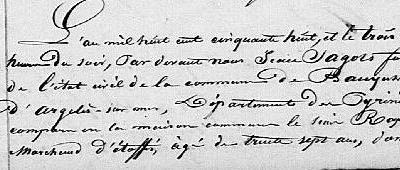 L'an mil huit cent cinquante huit, et le trois
heures du soir, Par devant nous
de l'état civil de la commune de
d'Argelès-sur-mer, Département des Pyrén
comparu en la maison commune le sieur
Marchand d'étoffes, âgé de trente sept ans,